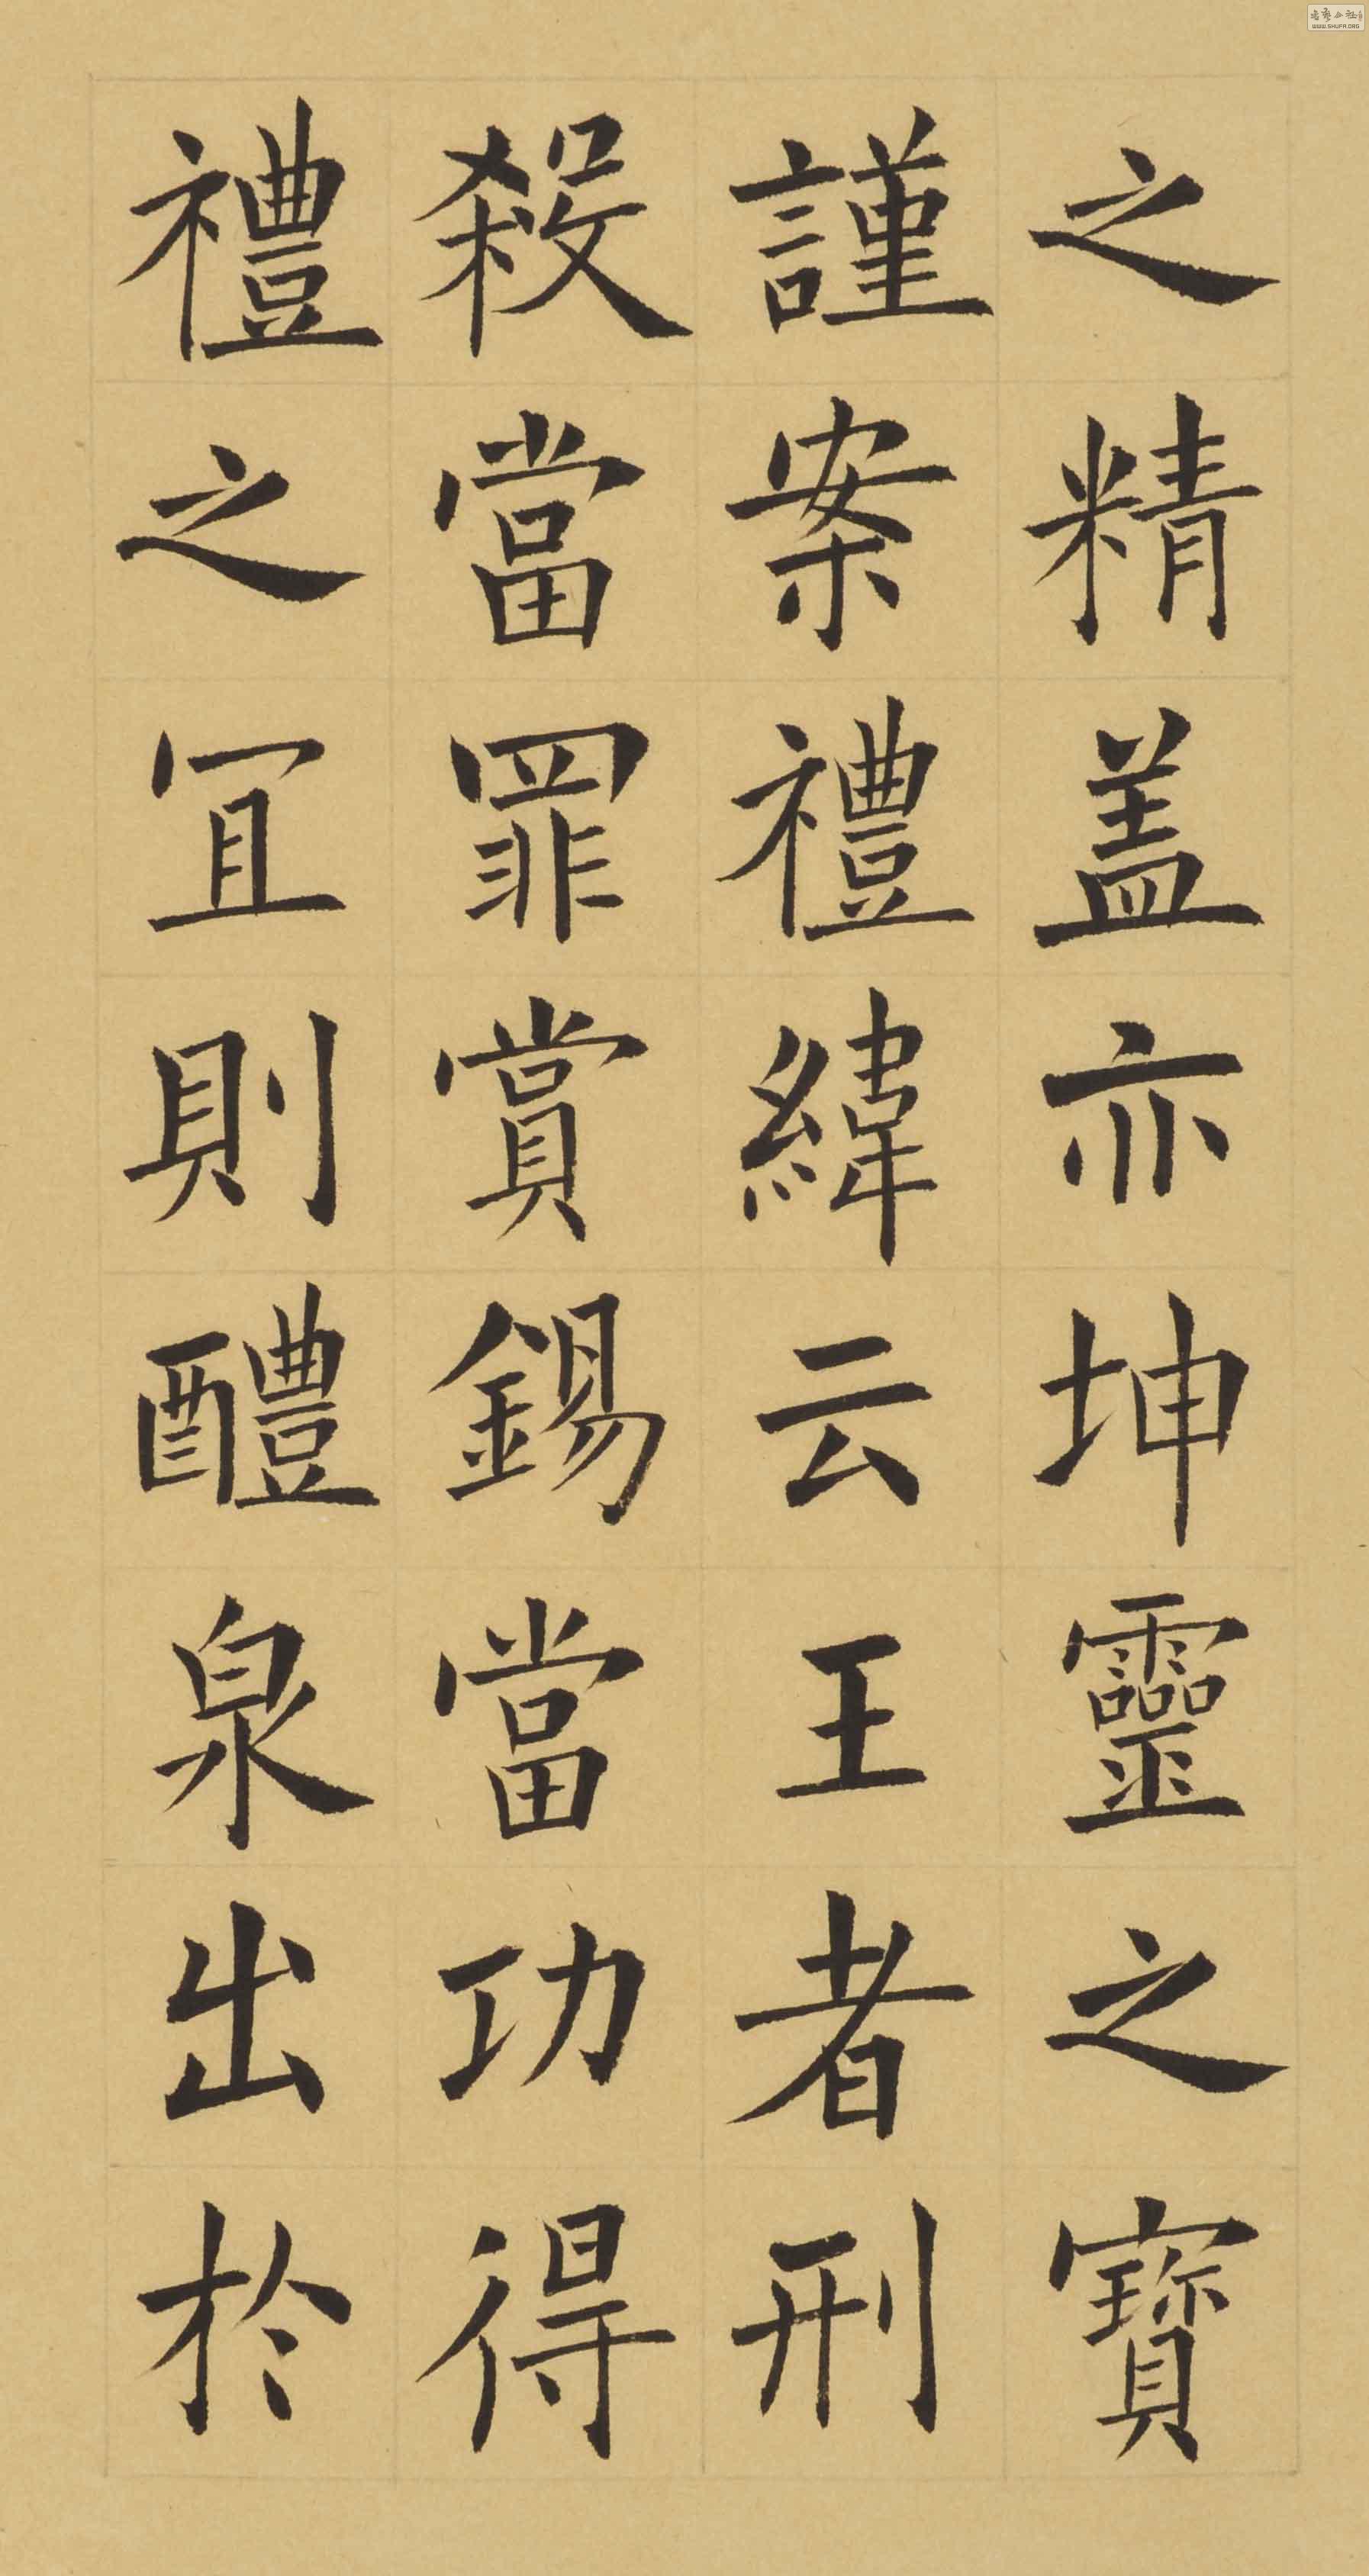 之精盖亦坤靈之寶
謹案禮緯云王者刑
殺當罪賞錫當功得
禮之冝則醴泉出於
WWW.SHUFA.ORG